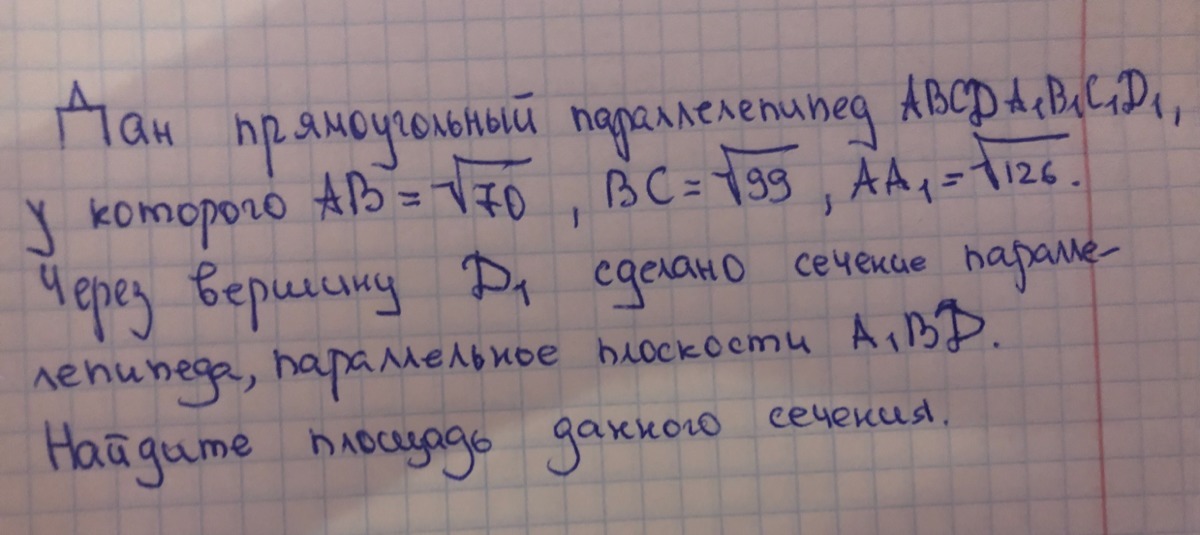 Дан прямоугольный параллелепипед ABCDA₁B₁C₁D₁,
у которого AB = √70, BC = √99, AA₁ = √126.
Через вершину D₁ сделано сечение паралле-
лепипеда, параллельное плоскости A₁BD.
Найдите площадь данного сечения.